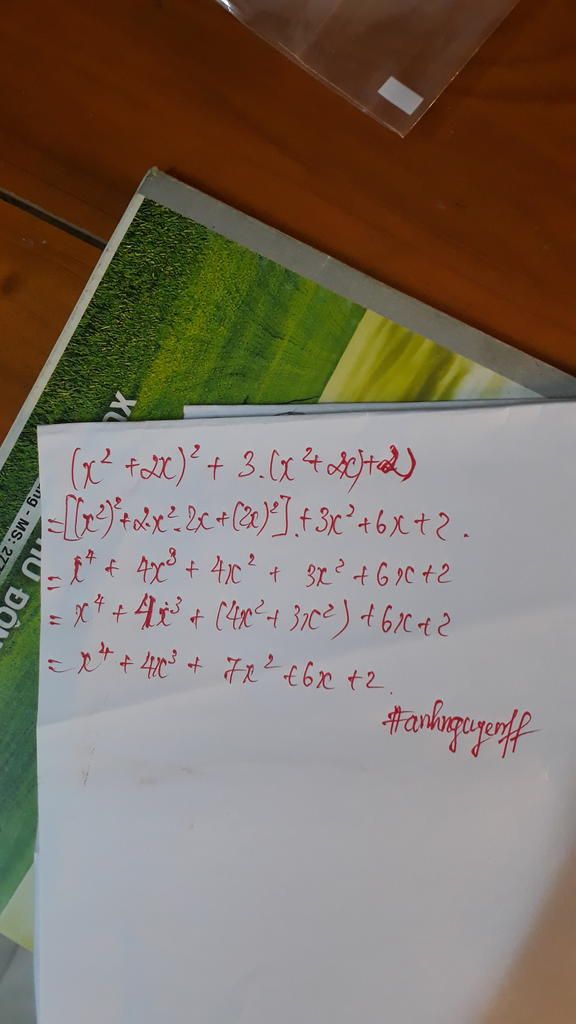 (x² + 2x)² + 3.(x² + 2x) + 2)
= [(x²)² + 2.x².2x + (2x)²] + 3x² + 6x + 2.
= x⁴ + 4x³ + 4x² + 3x² + 6x + 2
= x⁴ + 4x³ + (4x² + 3x²) + 6x + 2
= x⁴ + 4x³ + 7x² + 6x + 2.
#anhnguyenff